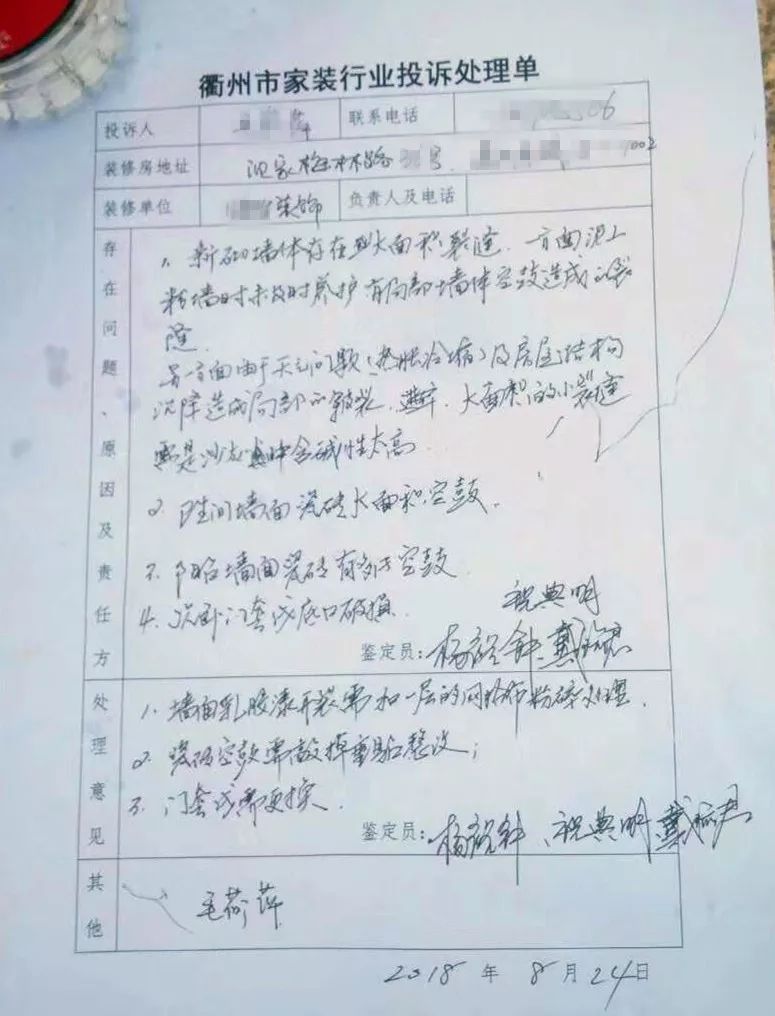 衢州市家装行业投诉处理单
投诉人 萍 联系电话 06
装修房地址 沈家梅林路 号 1002
装修单位 装饰 负责人及电话
存在问题、原因及责任方
1、新砌墙体存在大面积裂缝.一方面泥工
粉墙时未及时养护有局部墙体空鼓造成的裂
缝.
另一方面由于天气问题(热胀冷缩)及房屋结构
沉降造成局部的裂.大面积的小裂缝
要是沙中含碱性太高
2、卫生间墙面瓷砖大面积空鼓.
3、墙面瓷砖有多片空鼓
4、次卧门套线底口破损.
祝典明
鉴定员:杨 戴
处理意见
1、墙面乳胶漆开裂需加一层的网格布粉碎处理.
2、瓷砖空鼓需敲掉重贴整改;
3、门套线需更换.
鉴定员: 杨 、祝典明 戴
其他
毛荷萍
2018年8月24日